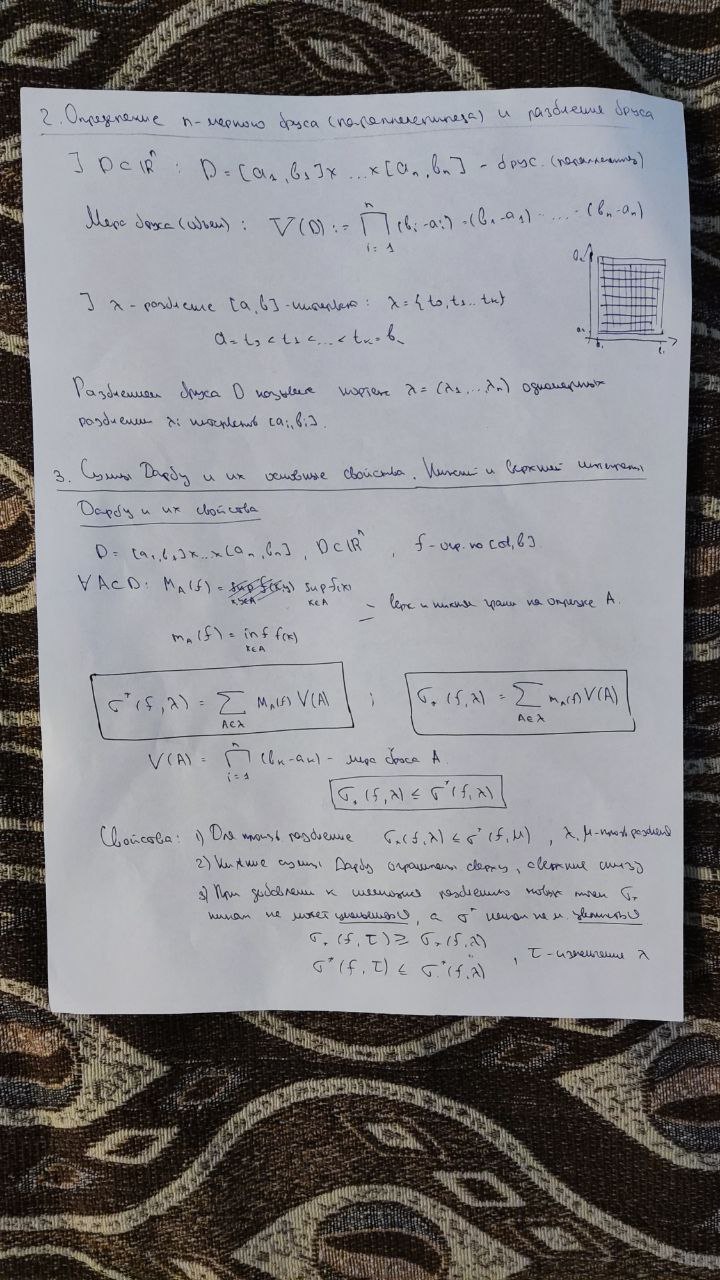 2. Определение n-мерного бруса (параллелепипеда) и разбиения бруса
] D⊂ℝⁿ : D = [a₁, b₁]×...×[aₙ, bₙ] - брус. (параллелепипед)
Мера бруса (объём) : V(D) := ∏ᵢ₌₁ⁿ (bᵢ-aᵢ) = (b₁-a₁)· ... ·(bₙ-aₙ)
] λ - разбиение [a,b] - интервал : λ = {t₀, t₁... tₖ}
a = t₀ < t₁ < ... < tₖ = b
Разбиением бруса D называем кортеж λ = (λ₁,...λₙ) одномерных
разбиений λᵢ интервалов [aᵢ, bᵢ].
3. Суммы Дарбу и их основные свойства. Нижний и верхний интегралы
Дарбу и их свойства
D = [a₁, b₁]×...×[aₙ, bₙ], D⊂ℝⁿ, f - опр. на [a, b].
∀A⊂D : M_A(f) = sup f(x) x∈A
верх и нижняя грани на отрезке A.
m_A(f) = inf f(x) x∈A
σ*(f, λ) = ∑_{A∈λ} M_A(f) V(A) ; σ_*(f, λ) = ∑_{A∈λ} m_A(f) V(A)
V(A) = ∏ᵢ₌₁ⁿ (bₖ-aₖ) - мера бруса A.
σ_*(f, λ) ≤ σ*(f, λ)
Свойства: 1) Для разбиение σ_*(f, λ) ≤ σ*(f, μ), λ, μ -
2) Нижние суммы Дарбу сверху, а снизу
3) При добавлении к разбиению новых точек σ_*
не может уменьшиться, а σ* не м.
σ_*(f, τ) ≥ σ_*(f, λ)
σ*(f, τ) ≤ σ*(f, λ) , τ - измельчение λ